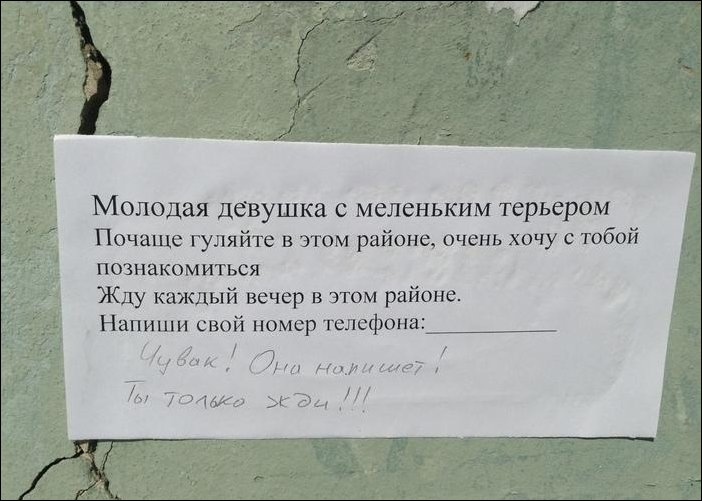 Молодая девушка с меленьким терьером
Почаще гуляйте в этом районе, очень хочу с тобой
познакомиться
Жду каждый вечер в этом районе.
Напиши свой номер телефона:___________
Чувак! Она напишет!
Ты только жди!!!